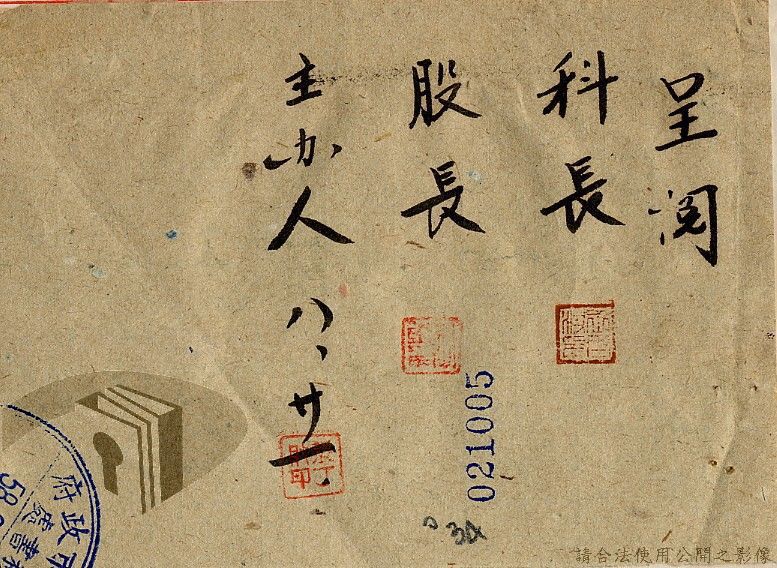 呈阅
科長
股長
主办人 八、廿一
021005
34
市政府
58
請合法使用公開之影像